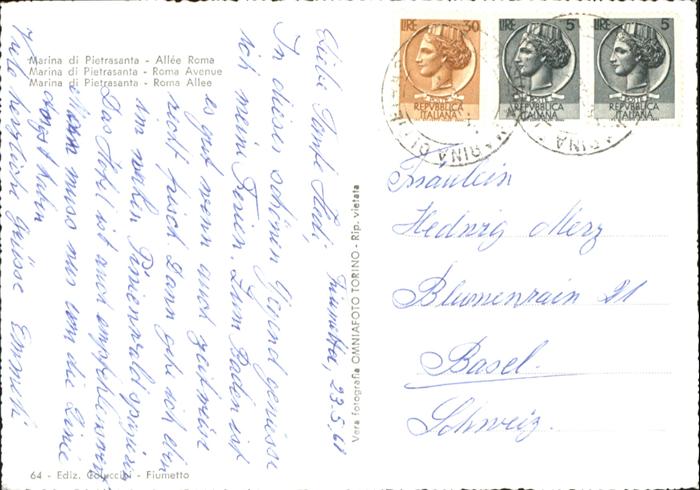 Marina di Pietrasanta - Allée Roma
Marina di Pietrasanta - Roma Avenue
Marina di Pietrasanta - Roma Allee
LIRE 30
REPVBBLICA
ITALIANA
LIRE 5
REPVBBLICA
ITALIANA
LIRE 5
REPVBBLICA
ITALIANA
MARINA DI
Fiumetto, 23.5.61
Liebe Tante Hedi,
In dieser schönen Gegend geniesse
ich meine Ferien. Zum Baden ist
es gut wenn auch zeitweise
recht frisch. Dann gehe ich in
im nahen Pinienwald spazieren
Das Hotel ist auch empfehlenswert
muss nur um die Linie
Angst haben
Viele herzliche Grüsse
Fräulein
Hedwig Merz
Blumenrain 21
Basel.
Schweiz.
Vera fotografia OMNIAFOTO TORINO - Rip. vietata
64 - Ediz. Coluccini - Fiumetto